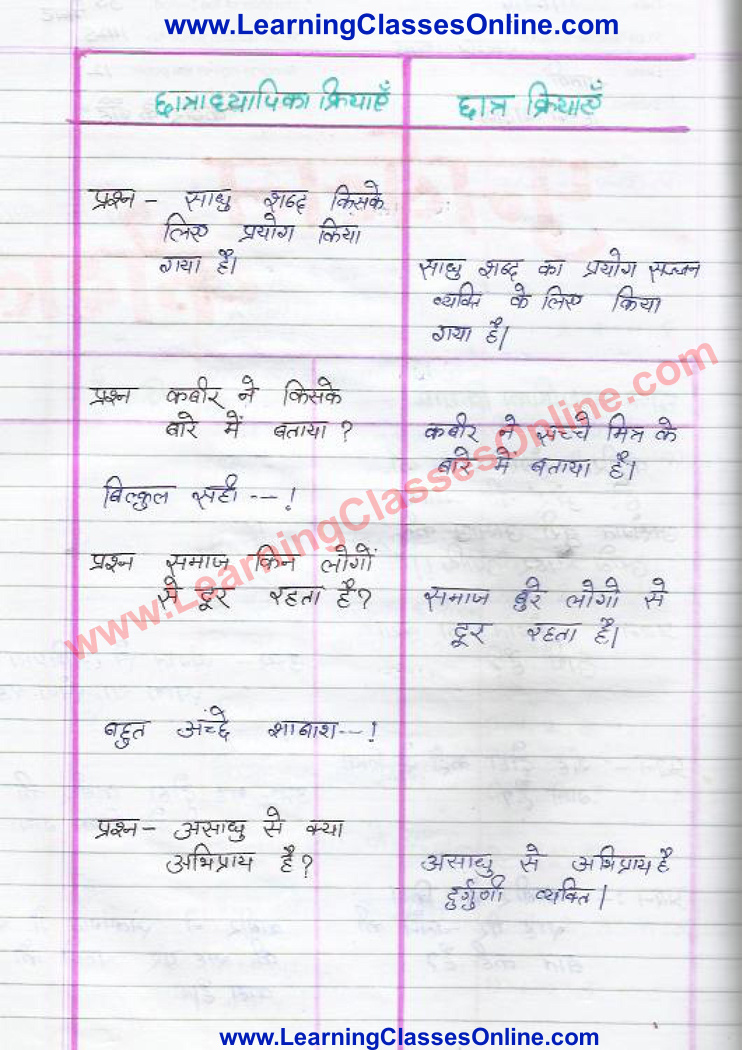 www.LearningClassesOnline.com
छात्राध्यापिका क्रियाएँ
छात्र क्रियाएँ
प्रश्न - साधु शब्द किसके
लिए प्रयोग किया
गया है।
साधु शब्द का प्रयोग सज्जन
व्यक्ति के लिए किया
गया है।
प्रश्न कबीर ने किसके
बारे में बताया?
कबीर ने सच्चे मित्र के
बारे मे बताया है।
बिल्कुल सही --!
प्रश्न समाज किन लोगों
से दूर रहता है?
समाज बुरे लोगो से
दूर रहता है।
बहुत अच्दे शाबाश--!
प्रश्न- असाधु से क्या
अभिप्राय है?
असाधु से अभिप्राय है
दुर्गुणी व्यक्ति।
www.LearningClassesOnline.com
www.LearningClassesOnline.com